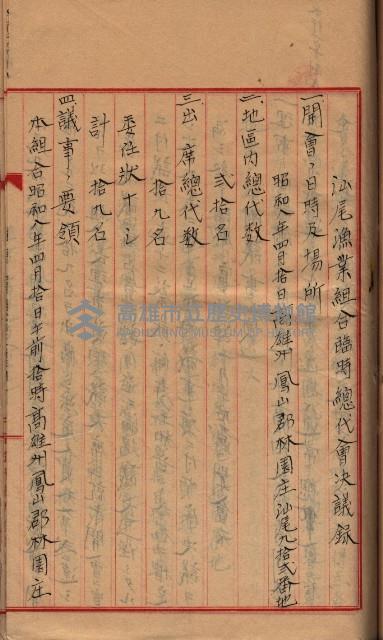 汕尾漁業組合臨時總代會決議録
一、開會ノ日時及場所
昭和八年四月拾日高雄州鳳山郡林園庄汕尾九拾弐番地
二、地區内總代数
弐拾名
三、出席總代数
拾九名
委任狀ナシ
計 拾九名
四、議事ノ要領
本組合昭和八年四月拾日午前拾時高雄州鳳山郡林園庄
高雄市立歷史博物館
KAOHSIUNG MUSEUM OF HISTORY